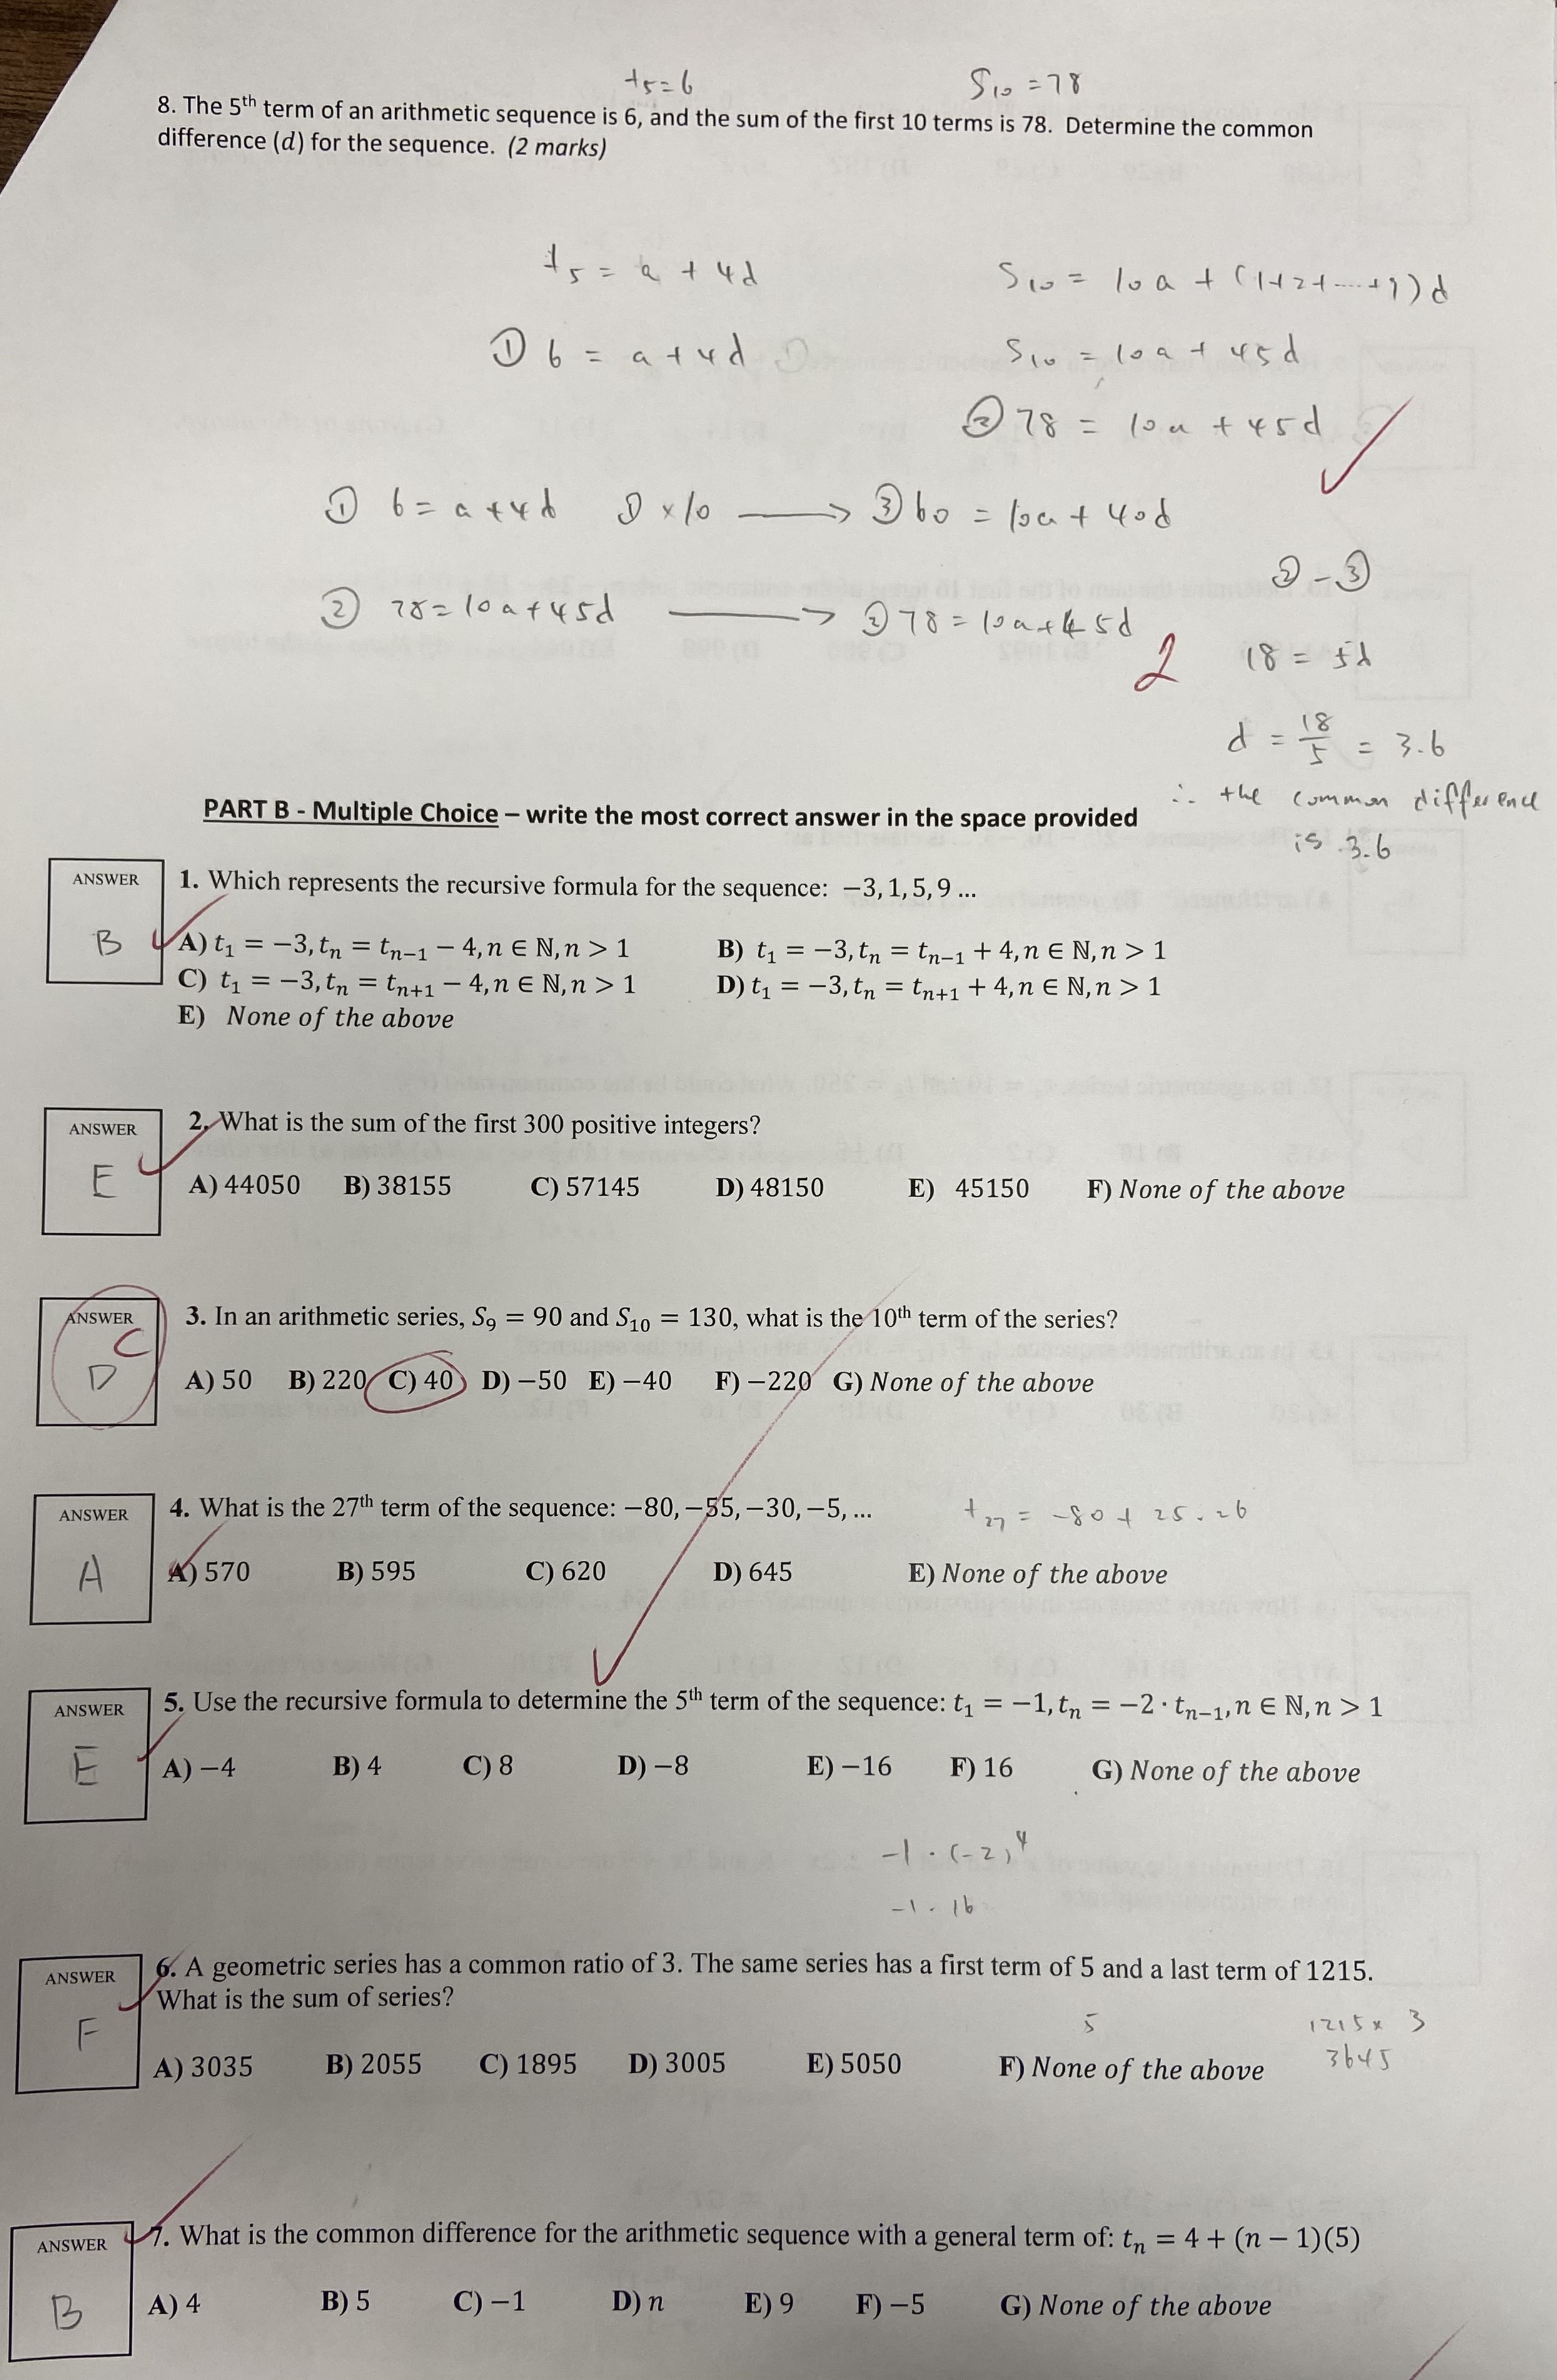 t₅ = 6
S₁₀ = 78
8. The 5ᵗʰ term of an arithmetic sequence is 6, and the sum of the first 10 terms is 78. Determine the common
difference (d) for the sequence. (2 marks)
t₅ = a + 4d
S₁₀ = 10a + (1+2+....+9)d
① 6 = a + 4d ①
S₁₀ = 10a + 45d
② 78 = 10a + 45d
① 6 = a + 4d ① × 10 ⟶ ③ 60 = 10a + 40d
② - ③
② 78 = 10a + 45d ⟶ ② 78 = 10a + 45d
2
18 = 5d
d = 18/5 = 3.6
∴ the common difference
is 3.6
PART B - Multiple Choice – write the most correct answer in the space provided
ANSWER
B
1. Which represents the recursive formula for the sequence: −3, 1, 5, 9 ...
A) t₁ = −3, tₙ = tₙ₋₁ − 4, n ∈ ℕ, n > 1 B) t₁ = −3, tₙ = tₙ₋₁ + 4, n ∈ ℕ, n > 1
C) t₁ = −3, tₙ = tₙ₊₁ − 4, n ∈ ℕ, n > 1 D) t₁ = −3, tₙ = tₙ₊₁ + 4, n ∈ ℕ, n > 1
E) None of the above
ANSWER
E
2. What is the sum of the first 300 positive integers?
A) 44050 B) 38155 C) 57145 D) 48150 E) 45150 F) None of the above
ANSWER
C
D
3. In an arithmetic series, S₉ = 90 and S₁₀ = 130, what is the 10ᵗʰ term of the series?
A) 50 B) 220 C) 40 D) −50 E) −40 F) −220 G) None of the above
ANSWER
A
4. What is the 27ᵗʰ term of the sequence: −80, −55, −30, −5, ...
t₂₇ = -80 + 25 . 26
A) 570 B) 595 C) 620 D) 645 E) None of the above
ANSWER
E
5. Use the recursive formula to determine the 5ᵗʰ term of the sequence: t₁ = −1, tₙ = −2 · tₙ₋₁, n ∈ ℕ, n > 1
A) −4 B) 4 C) 8 D) −8 E) −16 F) 16 G) None of the above
-1 · (-2)⁴
-1 · 16
ANSWER
F
6. A geometric series has a common ratio of 3. The same series has a first term of 5 and a last term of 1215.
What is the sum of series?
5
1215 × 3
3645
A) 3035 B) 2055 C) 1895 D) 3005 E) 5050 F) None of the above
ANSWER
B
7. What is the common difference for the arithmetic sequence with a general term of: tₙ = 4 + (n − 1)(5)
A) 4 B) 5 C) −1 D) n E) 9 F) −5 G) None of the above